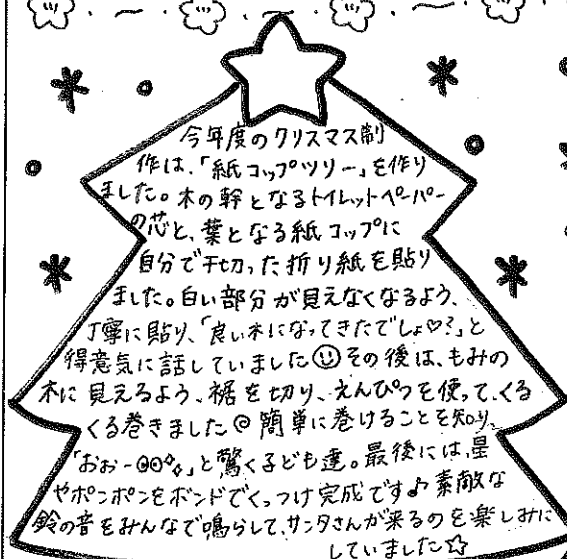 今年度のクリスマス制
作は、「紙コップツリー」を作り
ました。木の幹となるトイレットペーパー
の芯と、葉となる紙コップに
自分で千切った折り紙を貼り
ました。白い部分が見えなくなるよう、
丁寧に貼り、「良い木になってきたでしょ♡?」と
得意気に話していました☺その後は、もみの
木に見えるよう、裾を切り、えんぴつを使って、くる
くる巻きました◎簡単に巻けることを知り、
「おぉー👀」と驚く子ども達。最後には、星
やポンポンをボンドでくっつけ完成です♪素敵な
鈴の音をみんなで鳴らして、サンタさんが来るのを楽しみに
していました☆